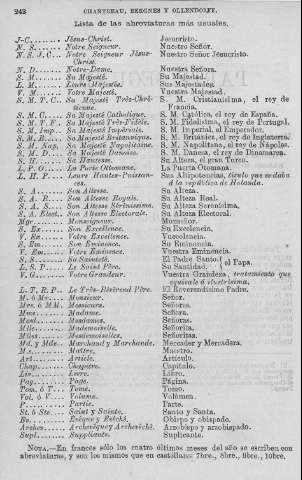 242 CHANTREAU, BERGNES Y OLLENDORFF.
Lista de las abreviaturas más usuales.
J-C........ Jésus-Christ. Jesucristo.
N. S....... Notre Seigneur. Nuestro Señor.
N. S. J. C... Notre Seigneur Jésus-Christ. Nuestro Señor Jesucristo.
N. D....... Notre-Dame. Nuestra Señora.
S. M....... Sa Majesté. Su Majestad.
L. M....... Leurs Majestés. Sus Majestades.
V. M....... Votre Majesté. Vuestra Majestad.
S. M. T. C.. Sa Majesté Très-Chrétienne. S. M. Cristianísima, el rey de Francia.
S. M. C..... Sa Majesté Catholique. S. M. Católica, el rey de España.
S. M. T. F.. Sa Majesté Très-Fidèle. S. M. Fidelísima, el rey de Portugal.
S. M. Imp.. Sa Majesté Impériale. S. M. Imperial, el Emperador.
S. M. B..... Sa Majesté Britannique. S. M. Británica, el rey de Inglaterra.
S. M. Nap. Sa Majesté Napolitaine. S. M. Napolitana, el rey de Nápoles.
S. M. D..... Sa Majesté Danoise. S. M. Danesa, el rey de Dinamarca.
S. H....... Sa Hautesse. Su Alteza, el gran Turco.
L. P. O..... La Porte Ottomane. La Puerta Otomana.
L. H. P..... Leurs Hautes-Puissances. Sus Altipotencias, título que se daba á la república de Holanda.
S. A....... Son Altesse. Su Alteza.
S. A. R..... Son Altesse Royale. Su Alteza Real.
S. A. S..... Son Altesse Sérénissime. Su Alteza Serenísima.
S. A. Elect.. Son Altesse Electorale. Su Alteza Electoral.
Mgr....... Monseigneur. Monseñor.
S. Ex...... Son Excellence. Su Excelencia.
V. Ex...... Votre Excellence. Vuecelencia.
S. Em...... Son Eminence. Su Eminencia.
V. Em...... Votre Eminence. Vuestra Eminencia.
S. S....... Sa Sainteté. El Padre Santo } el Papa.
L. S. P..... Le Saint Père. Su Santidad.
V. G....... Votre Grandeur. Vuestra Grandeza, tratamiento que equivale á ilustrísima.
L. T. R. P.. Le Très-Révérend Père. El Reverendísimo Padre.
M. ó Mr.... Monsieur. Señor.
Mrs. ó MM. Messieurs. Señores.
Mme....... Madame. Señora.
Mmes....... Mesdames. Señoras.
Mlle....... Mademoiselle. Señorita.
Mlles....... Mesdemoiselles. Señoritas.
Md. y Mde.. Marchand y Marchande. Mercader y Mercadera.
Me....... Maître. Maestro.
Art....... Article. Artículo.
Chap....... Chapitre. Capítulo.
Liv....... Livre. Libro.
Pag....... Page. Página.
Tom. ó T... Tome. Tomo.
Vol. ó V.... Volume. Volúmen.
P....... Partie. Parte.
St. ó Ste.... Saint y Sainte. Santo y Santa.
Ev....... Evêque y Evêché. Obispo y obispado.
Archev..... Archevêque y Archevêché. Arzobispo y arzobispado.
Suppl....... Suppliante. Suplicante.
NOTA.—En francés sólo los cuatro últimos meses del año se escriben con
abreviaturas, y son los mismos que en castellano 7bre., 8bre., 9bre., 10bre.